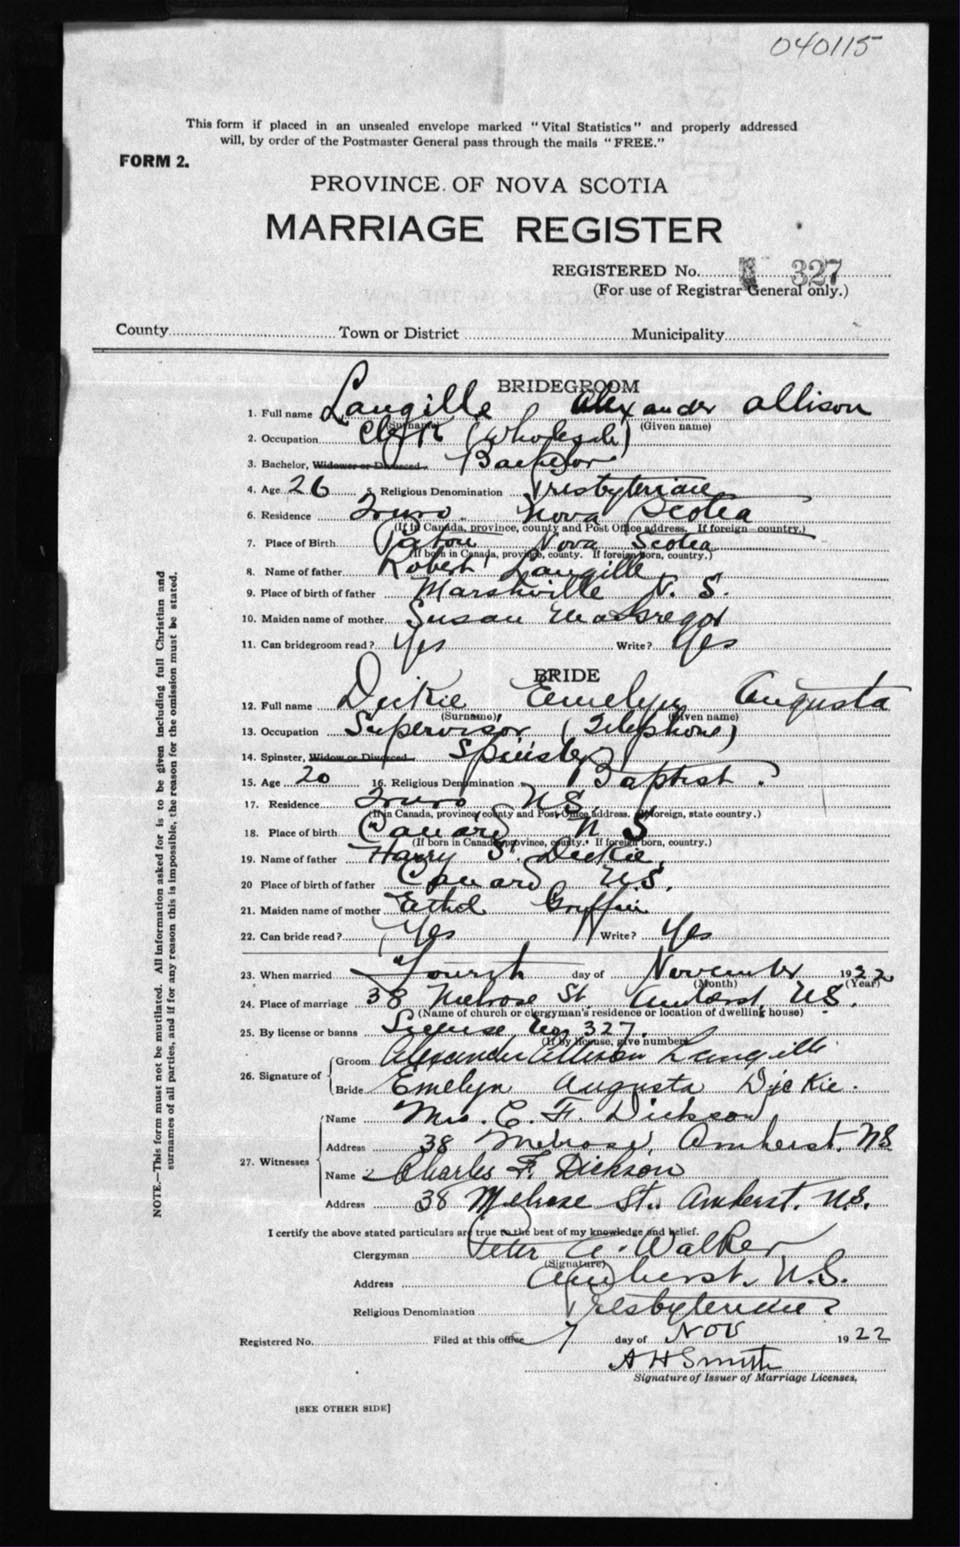 040115
This form if placed in an unsealed envelope marked "Vital Statistics" and properly addressed
will, by order of the Postmaster General pass through the mails "FREE."
FORM 2.
PROVINCE OF NOVA SCOTIA
MARRIAGE REGISTER
REGISTERED No. 327
(For use of Registrar General only.)
County Town or District Municipality
BRIDEGROOM
1. Full name Langille Alexander Allison
(Surname) (Given name)
2. Occupation Clerk (Wholesale)
3. Bachelor, Widower or Divorced Bachelor
4. Age 26 5. Religious Denomination Presbyterian
6. Residence Truro Nova Scotia
(If in Canada, province, county and Post Office address. If foreign country.)
7. Place of Birth Nova Scotia
(If born in Canada, province, county. If foreign born, country.)
8. Name of father Robert Langille
9. Place of birth of father Marshville N. S.
10. Maiden name of mother Susan McGregor
11. Can bridegroom read? Yes Write? Yes
BRIDE
12. Full name Dickie Emelyn Augusta
(Surname) (Given name)
13. Occupation Supervisor (Telephone)
14. Spinster, Widow or Divorced Spinster
15. Age 20 16. Religious Denomination Baptist.
17. Residence Truro N.S.
(If in Canada, province, county and Post Office address. If foreign, state country.)
18. Place of birth Canard N S
(If born in Canada, province, county. If foreign born, country.)
19. Name of father Harry S. Dickie
20 Place of birth of father Canard N.S.
21. Maiden name of mother Ethel Griffin
22. Can bride read? Yes Write? Yes
23. When married Fourth day of November 1922
(Month) (Year)
24. Place of marriage 38 Melrose St. Amherst, N.S.
(Name of church or clergyman's residence or location of dwelling house)
25. By license or banns License No. 327.
(If by license, give number)
26. Signature of
Groom Alexander Allison Langille
Bride Emelyn Augusta Dickie.
27. Witnesses
Name Mrs. C. F. Dickson,
Address 38 Melrose, Amherst, N.S.
Name Charles F. Dickson
Address 38 Melrose St. Amherst. N.S.
I certify the above stated particulars are true to the best of my knowledge and belief.
Clergyman Peter A. Walker
(Signature)
Address Amherst, N.S.
Religious Denomination Presbyterian
Registered No. Filed at this office 7 day of Nov 1922
A H Smith
Signature of Issuer of Marriage Licenses.
[SEE OTHER SIDE]
NOTE.—This form must not be mutilated. All information asked for is to be given including full Christian and
surnames of all parties, and if for any reason this is impossible, the reason for the omission must be stated.